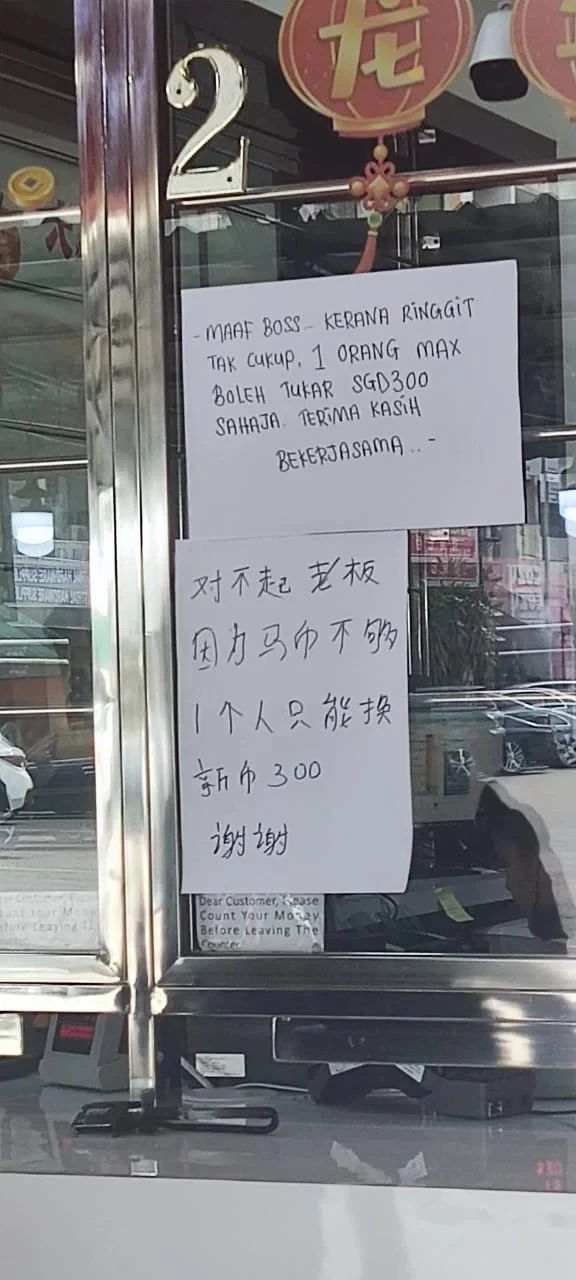 龙
2
- MAAF BOSS... KERANA RINGGIT
TAK CUKUP, 1 ORANG MAX
BOLEH TUKAR SGD300
SAHAJA. TERIMA KASIH
BEKERJASAMA.. -
对不起 老板
因为马币不够
1个人只能换
新币300
谢谢
Dear Customer, Please
Count Your Money
Before Leaving The
Counter.